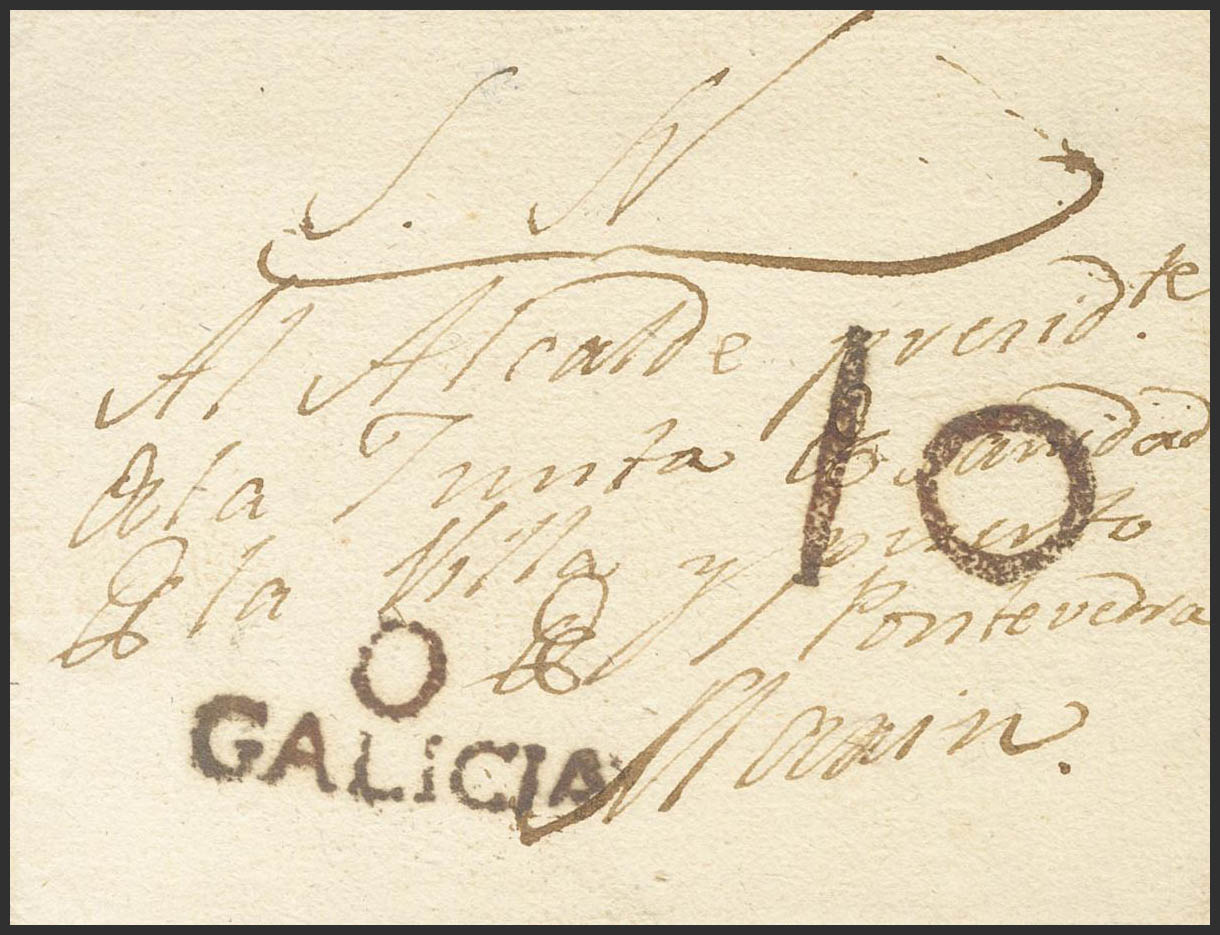 S. N
Al Alcalde presid.te
de la Junta de Sanidad
de la Villa y puerto
de Pontevedra
Marin.
10
O
GALICIA